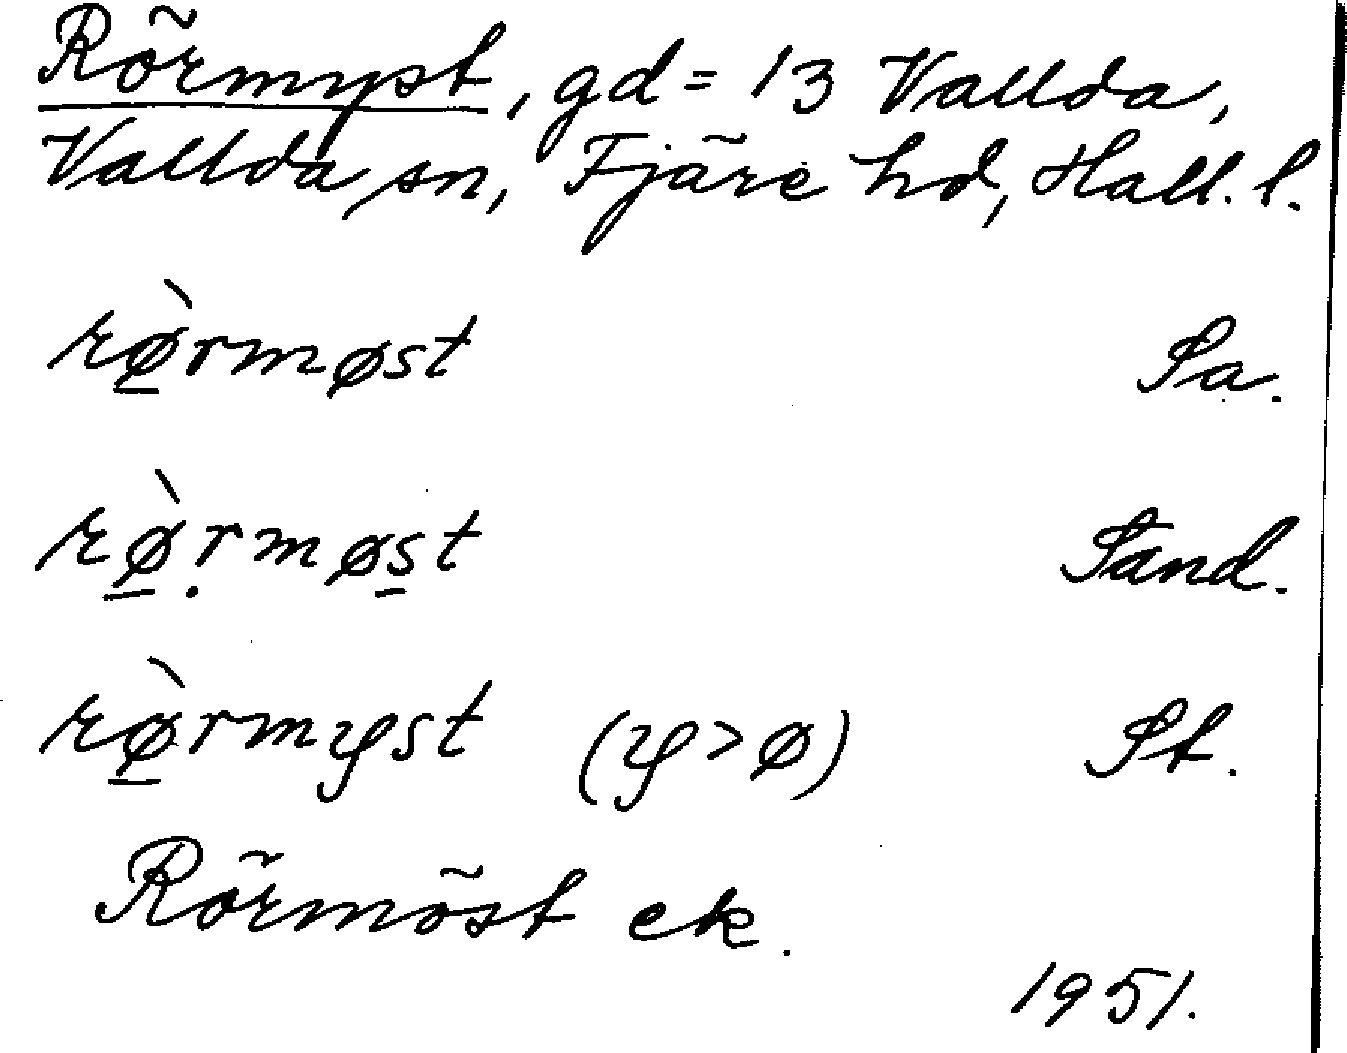 Rörmyst, gd = 13 Vallda,
Vallda sn, Fjäre hd, Hall. l.
rø̱̀rmøst Sa.
rø̱̀ṛmøs̱t Sand.
rø̱̀rmyst (y>ø) St.
Rörmöst ek.
1951.